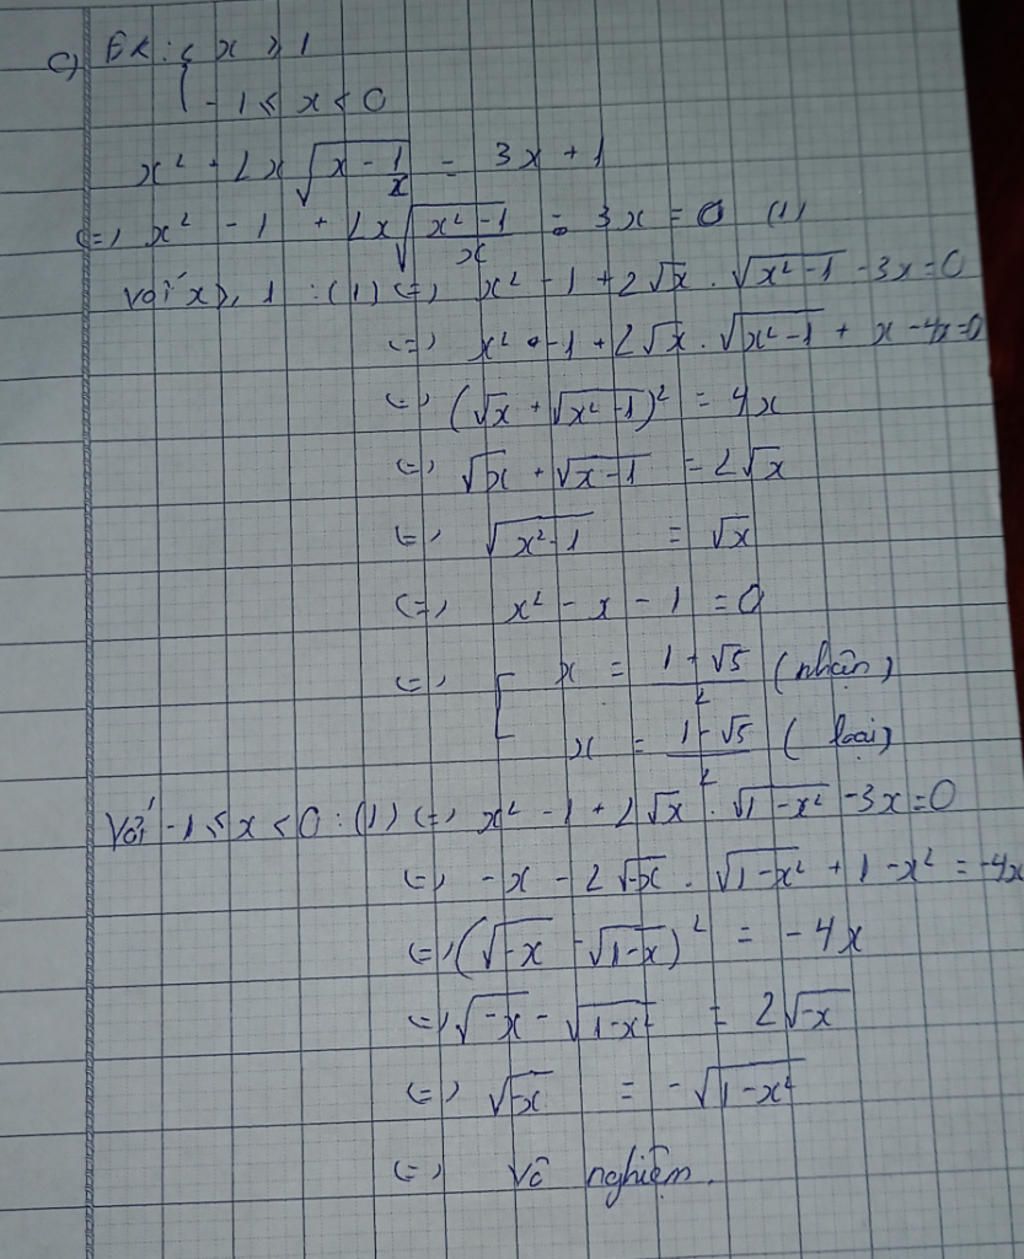 c) ĐK: { x ≥ 1
-1 ≤ x < 0
x² + 2x√(x - 1/x) = 3x + 1
<=> x² - 1 + 2x√((x² - 1)/x) = 3x = 0 (1)
Với x ≥ 1 : (1) <=> x² - 1 + 2√x . √(x² - 1) - 3x = 0
<=> x² - 1 + 2√x . √(x² - 1) + x - 4x = 0
<=> (√x + √(x² - 1))² = 4x
<=> √x + √(x - 1) = 2√x
<=> √(x² - 1) = √x
<=> x² - x - 1 = 0
<=> [ x = (1 + √5)/2 (nhận)
x = (1 - √5)/2 (loại)
Với -1 ≤ x < 0 : (1) <=> x² - 1 + 2√x . √(1 - x²) - 3x = 0
<=> -x - 2√-x . √(1 - x²) + 1 - x² = -4x
<=> (√-x - √(1 - x))² = -4x
<=> √-x - √(1 - x²) = 2√-x
<=> √-x = -√(1 - x²)
<=> Vô nghiệm.